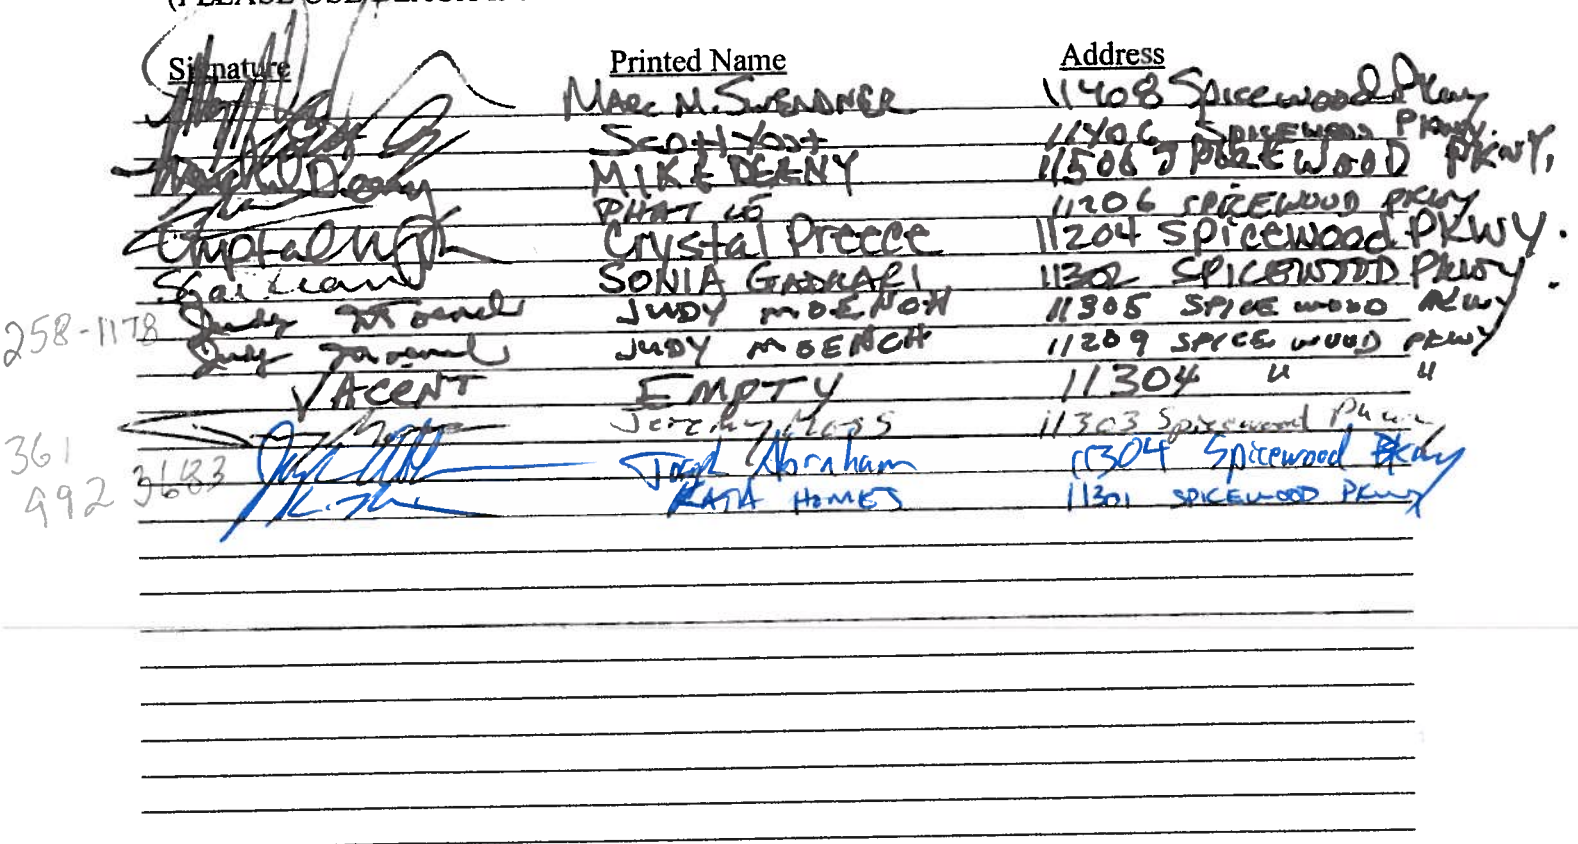 Signature Printed Name Address
Marc M. Swendner 11408 Spicewood Pkwy
Scott Yost 11406 SPICEWOOD PKWY
MIKE DEENY 11506 SPICEWOOD PKWY.
PHAT 11206 SPICEWOOD PKWY
Crystal Preece 11204 Spicewood PKWY.
SONIA GADKARI 11302 SPICEWOOD PKWY.
258-1178 Judy Moench JUDY MOENCH 11305 SPICE WOOD PKWY
Judy Moench JUDY MOENCH 11209 SPICE WOOD PKWY
VACENT EMPTY 11304 " "
Jeremy Moss 11303 Spicewood Pkwy
361
992 3683 Abraham 11304 Spicewood Pkwy
KATA HOMES 11301 SPICEWOOD PKWY